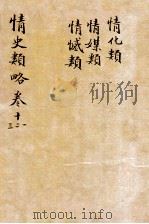 情化類
情媒類
情憾類
情史類略卷十一
二
三